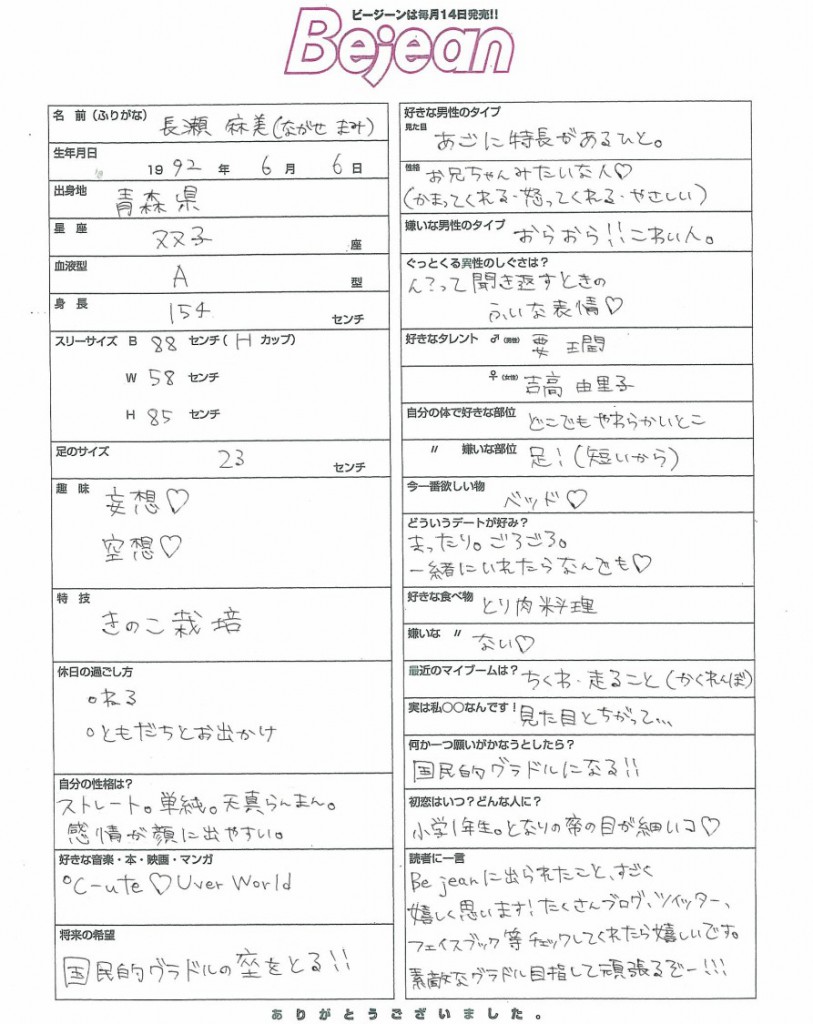 ビージーンは毎月14日発売!!
Bejean
名 前 (ふりがな) 長瀬 麻美(ながせ まみ)
生年月日
1992 年 6 月 6 日
出身地 青森県
星 座 双子 座
血液型 A 型
身 長 154 センチ
スリーサイズ B 88 センチ( H カップ)
W 58 センチ
H 85 センチ
足のサイズ 23 センチ
趣 味 妄想♡
空想♡
特 技
きのこ栽培
休日の過ごし方
○ねる
○ともだちとお出かけ
自分の性格は?
ストレート。単純。天真らんまん。
感情が顔に出やすい。
好きな音楽・本・映画・マンガ
○C-ute♡Uver World
将来の希望
国民的グラドルの座をとる!!
好きな男性のタイプ
見た目 あごに特長があるひと。
性格 お兄ちゃんみたいな人♡
(かまってくれる・怒ってくれる・やさしい)
嫌いな男性のタイプ おらおら!!こわい人。
ぐっとくる異性のしぐさは?
ん?って聞き返すときの
ふいな表情♡
好きなタレント ♂(男性) 要 潤
♀(女性) 吉高 由里子
自分の体で好きな部位 どこでもやわらかいとこ
〃 嫌いな部位 足!(短いから)
今一番欲しい物 ベッド♡
どういうデートが好み?
まったり。ごろごろ。
一緒にいれたらなんでも♡
好きな食べ物 とり肉料理
嫌いな 〃 ない♡
最近のマイブームは? ちくわ・走ること(かくれんぼ)
実は私○○なんです! 見た目とちがって...
何か一つ願いがかなうとしたら?
国民的グラドルになる!!
初恋はいつ?どんな人に?
小学1年生。となりの席の目が細いコ♡
読者に一言
Be jeanに出られたこと、すごく
嬉しく思います!たくさんブログ、ツイッター、
フェイスブック等チェックしてくれたら嬉しいです。
素敵なグラドル目指して頑張るぞー!!!
ありがとうございました。